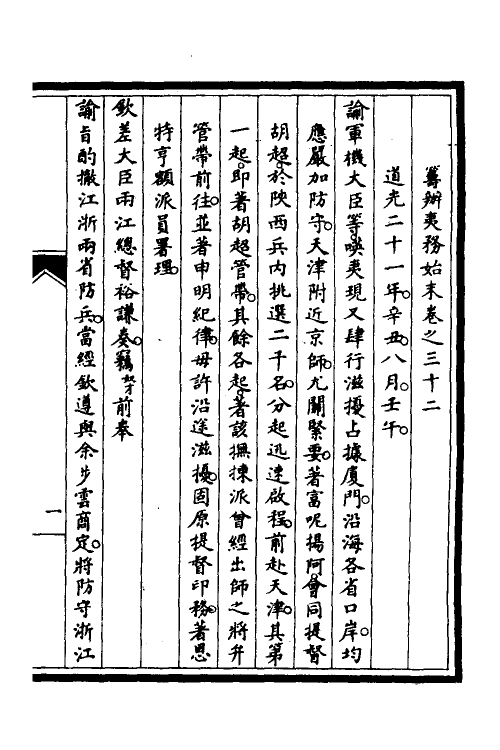 籌辦夷務始末卷之三十二
道光二十一年。辛丑。八月。壬午。
諭軍機大臣等。㗸夷現又肆行滋擾。占據廈門。沿海各省口岸。均
應嚴加防守。天津附近京師。尤關緊要。著富呢揚阿。會同提督
胡超。於陝西兵內挑選二千名。分起迅速啟程。前赴天津。其第
一起。即著胡超管帶。其餘各起。著該撫揀派曾經出師之將弁
管帶前往。並著申明紀律。毋許沿途滋擾。固原提督印務。著恩
特亨額派員署理。
欽差大臣兩江總督裕謙奏。竊奴才前奉
諭旨酌撤江浙兩省防兵。當經欽遵與余步雲商定。將防守浙江
一